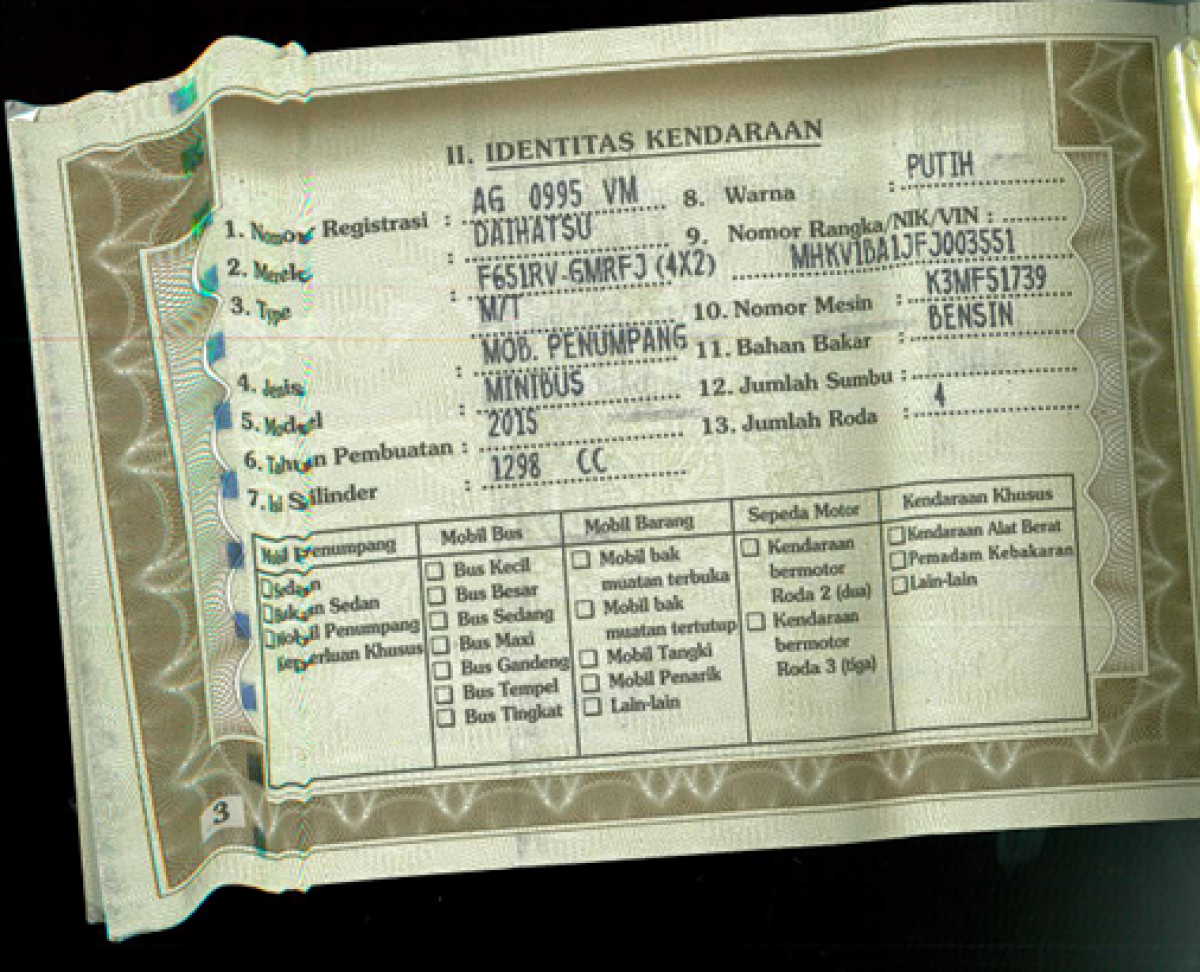 II. IDENTITAS KENDARAAN
1. Nomor Registrasi : AG 0995 VM
2. Merek : DAIHATSU
3. Type : F651RV-GMRFJ (4X2)
M/T
4. Jenis : MOB. PENUMPANG
5. Model : MINIBUS
6. Tahun Pembuatan : 2015
7. Isi Silinder : 1298 CC
8. Warna : PUTIH
9. Nomor Rangka/NIK/VIN :
MHKV1BA1JFJ003551
10. Nomor Mesin : K3MF51739
11. Bahan Bakar : BENSIN
12. Jumlah Sumbu :
13. Jumlah Roda : 4
Mobil Penumpang
Sedan
Bukan Sedan
Mobil Penumpang
Keperluan Khusus
Mobil Bus
Bus Kecil
Bus Besar
Bus Sedang
Bus Maxi
Bus Gandeng
Bus Tempel
Bus Tingkat
Mobil Barang
Mobil bak
muatan terbuka
Mobil bak
muatan tertutup
Mobil Tangki
Mobil Penarik
Lain-lain
Sepeda Motor
Kendaraan
bermotor
Roda 2 (dua)
Kendaraan
bermotor
Roda 3 (tiga)
Kendaraan Khusus
Kendaraan Alat Berat
Pemadam Kebakaran
Lain-lain
3